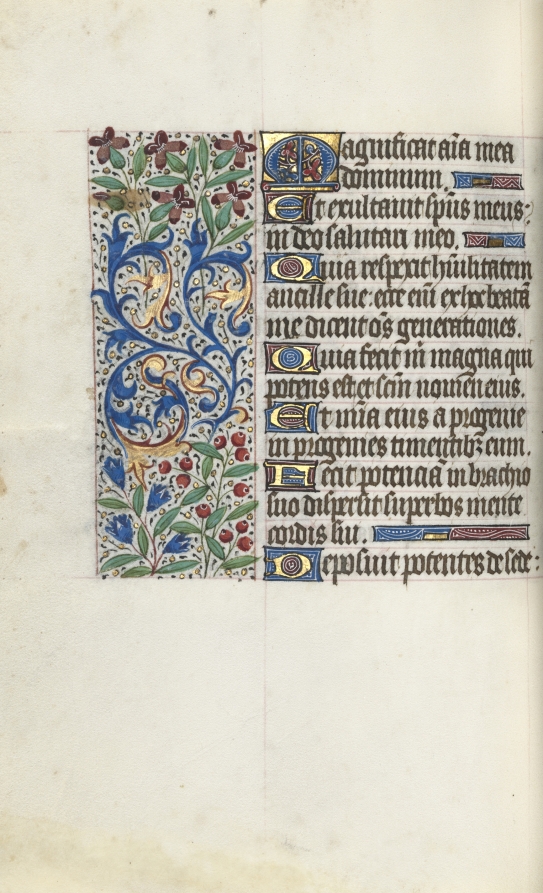 Magnificat aīa mea
dominum.
Et exultauit sp̄us meus:
in deo salutari meo.
Quia respexit hūilitatem
ancille sue: ecce eni᷑ ex hoc beatā
me dicent oēs generationes.
Quia fecit m̄ magna qui
potens est: et scm̄ nomen eius.
Et mīa eius a progenie
in progenies timentib᷒ eum.
Fecit potenciā in brachio
suo dispersit superbos mente
cordis sui.
Deposuit potentes de sede: